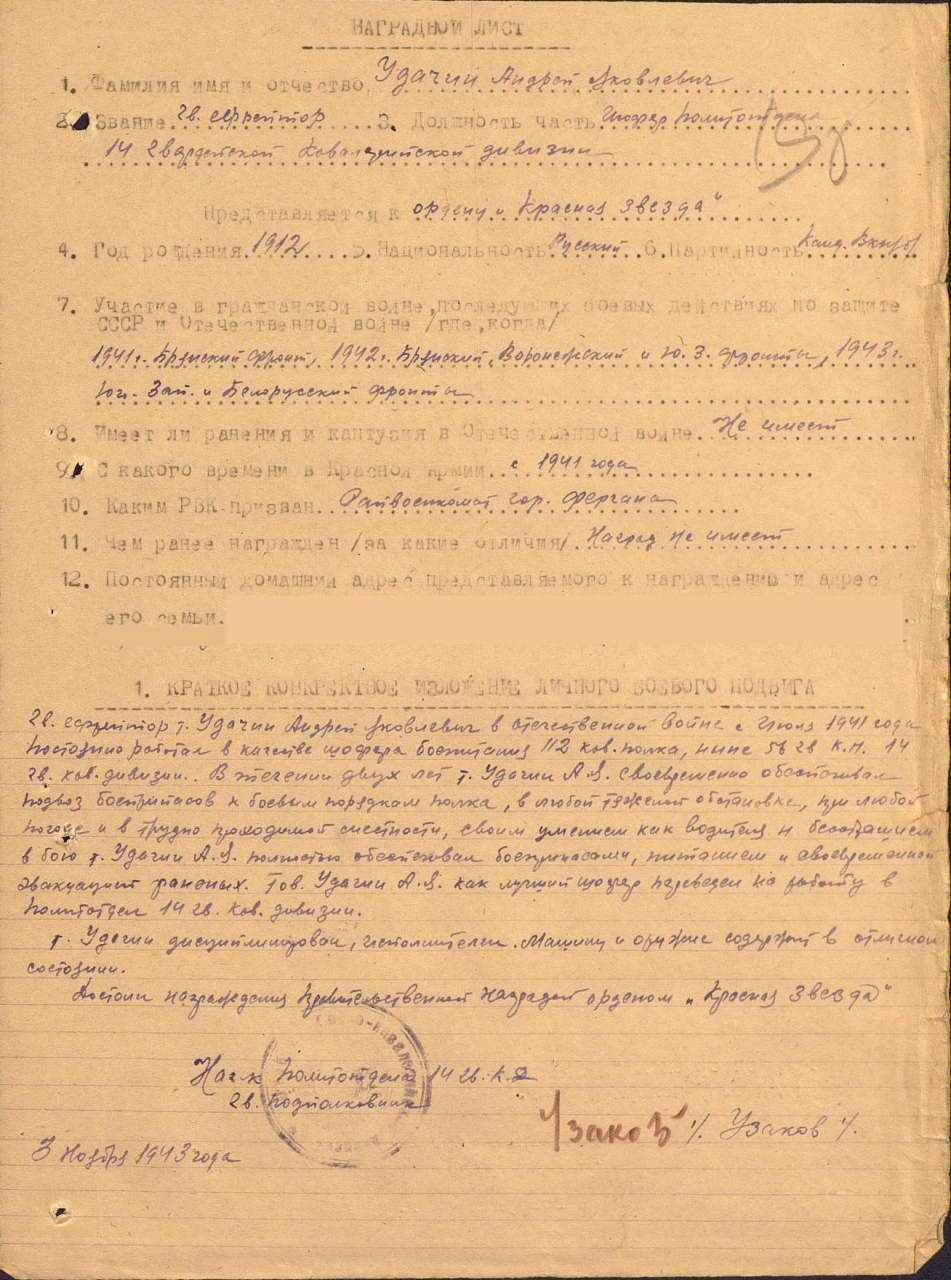 НАГРАДНОЙ ЛИСТ
1. Фамилия имя и отчество Удачин Андрей Яковлевич
2. Звание гв. ефрейтор 3. Должность часть Шофер политотдела
14 гвардейской Кавалерийской дивизии
Представляется к ордену „Красная звезда"
4. Год рождения 1912г. 5. Национальность Русский 6. Партийность Канд. ВКП(б)
7. Участие в гражданской войне, последующих боевых действиях по защите
СССР и Отечественной войне /где, когда/
1941г. Брянский фронт, 1942г. Брянский, Воронежский и Ю. З. фронты, 1943г.
Юго-Зап. и Белорусский фронты
8. Имеет ли ранения и кантузия в Отечественной войне. Не имеет
9. С какого времени в Красной армии. с 1941 года
10. Каким РВК призван. Райвоенкомат гор. Фергана
11. Чем ранее награжден /за какие отличия/ Наград не имеет
12. Постоянный домашний адрес представляемого к награждению и адрес
его семьи.
1. КРАТКОЕ КОНКРЕТНОЕ ИЗЛОЖЕНИЕ ЛИЧНОГО БОЕВОГО ПОДВИГА
Гв. ефрейтор т. Удачин Андрей Яковлевич в отечественной Войне с Июля 1941 года
постоянно работал в качестве шофера боепитания 112 кав. полка, ныне 56 гв К.П. 14
гв. кав. дивизии. В течении двух лет т. Удачин А.Я. своевременно обеспечивал
подвоз боеприпасов к боевым порядкам полка, в любой тяжелой обстановке, при любой
погоде и в трудно проходимой местности, своим умением как водителя и бесстрашием
в бою т. Удачин А.Я. полностью обеспечивал боеприпасами, питанием и своевременной
эвакуацией раненых. Тов. Удачин А.Я. как лучший шофер переведен на работу в
политотдел 14 гв. кав. дивизии.
т. Удачин дисциплинирован, исполнителен. Машину и оружие содержит в отличном
состоянии.
Достоин награждения Правительственной наградой орденом „Красная звезда"
Нач-к политотдела 14 гв. К.Д
гв. подполковник
Узаков /. Узаков /.
3 Ноября 1943 года